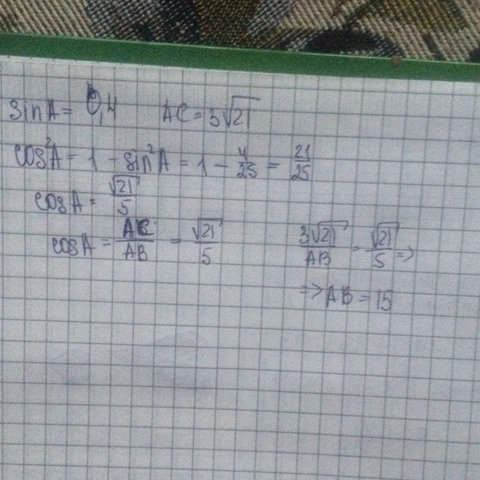 sinA = 0,4 AC = 3√21
cos²A = 1 - sin²A = 1 - 4/25 = 21/25
cosA = √21/5
cosA = AC/AB = √21/5 3√21/AB = √21/5 =>
=> AB = 15